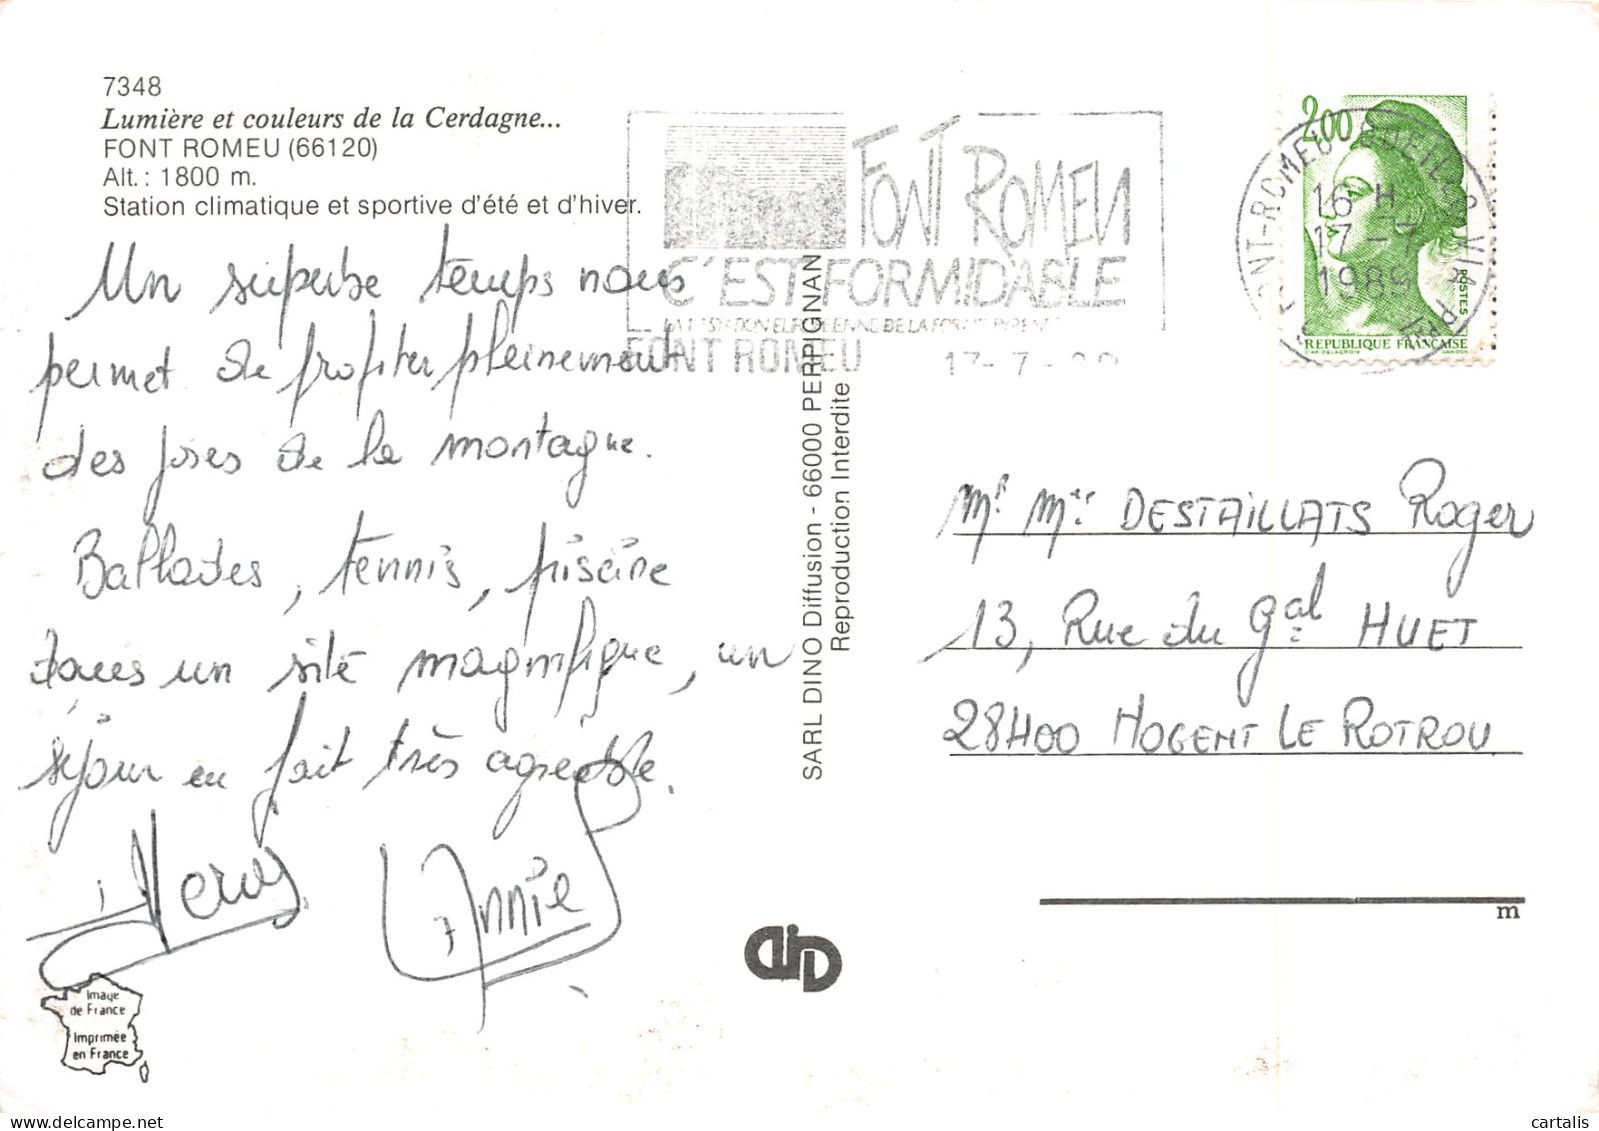 7348
Lumière et couleurs de la Cerdagne...
FONT ROMEU (66120)
Alt. : 1800 m.
Station climatique et sportive d'été et d'hiver.
Un superbe temps nous
permet de profiter pleinement
des joies de la montagne.
Ballades, tennis, piscine
dans un site magnifique, un
séjour en fait très agréable.
Hervé
Annie
Image
de France
Imprimée
en France
SARL DINO Diffusion - 66000 PERPIGNAN
Reproduction Interdite
FONT ROMEU
C'EST FORMIDABLE
FONT ROMEU
17-7-
2,00
POSTES
REPUBLIQUE FRANÇAISE
FONT-ROMEU ODEILLO VIA
16 H
17-7
1989
Mr Me DESTAILLATS Roger
13, Rue du Gal HUET
28400 NOGENT LE ROTROU
m
cartalis